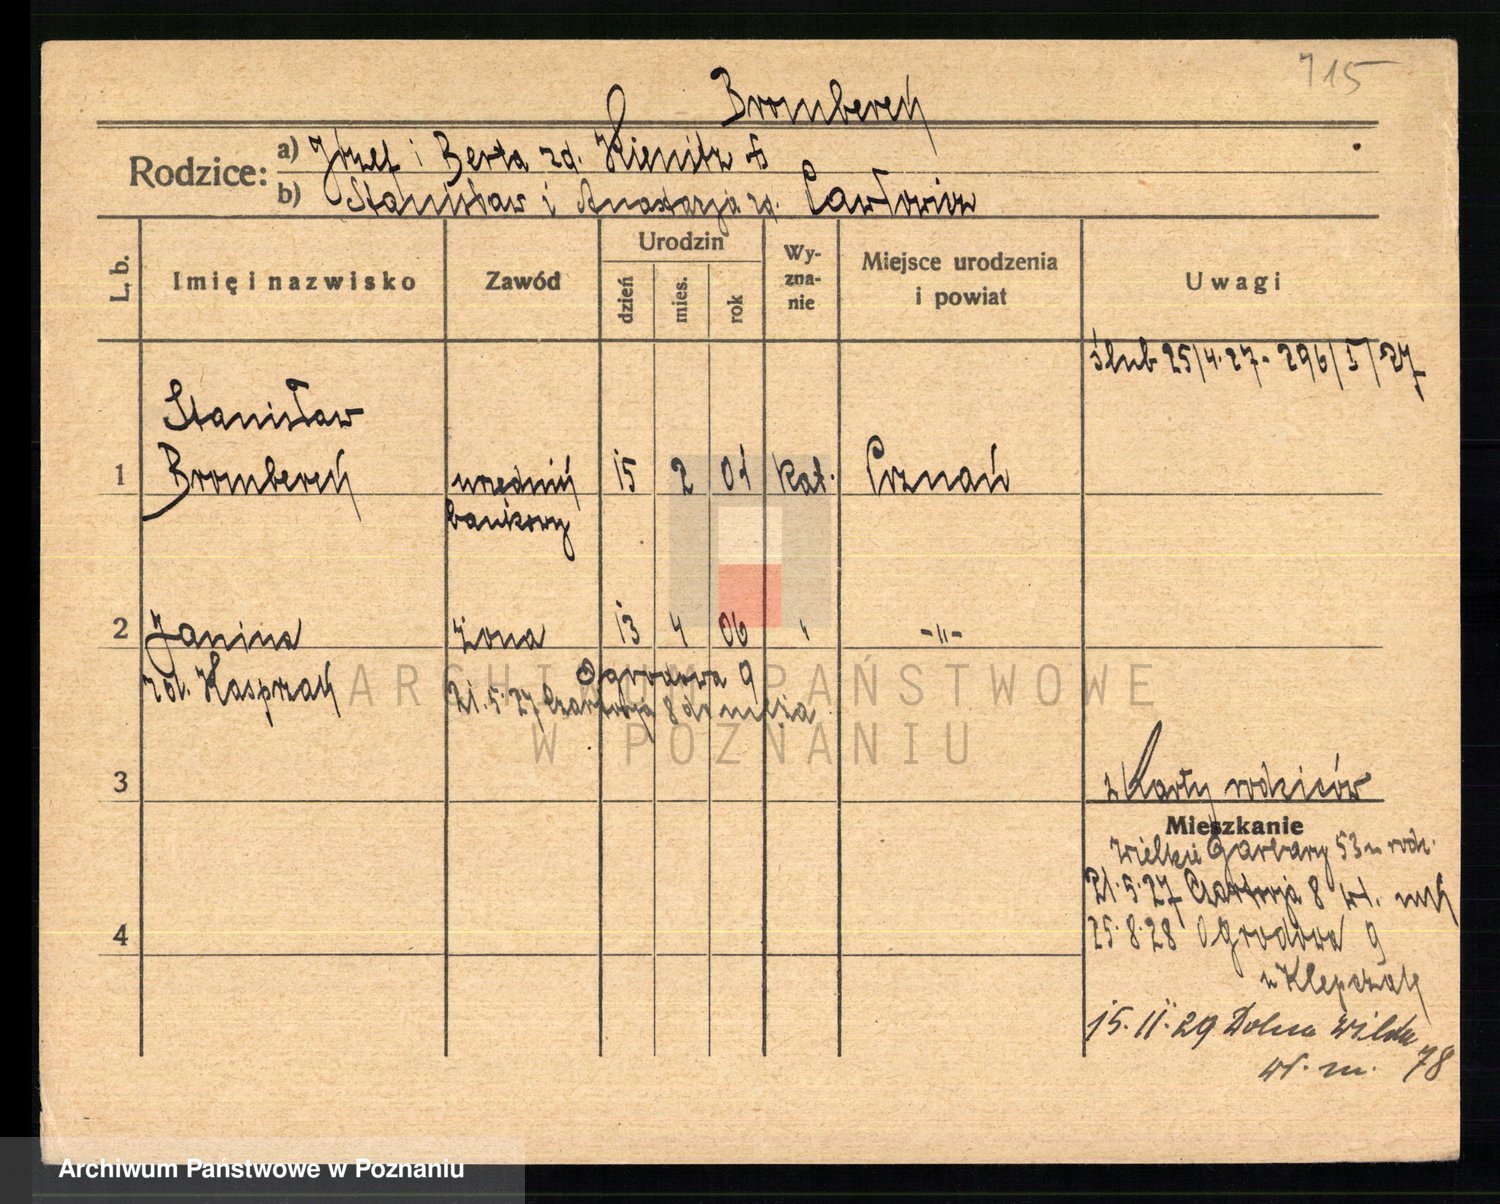 715
Bromberek
Rodzice: a) Józef i Berta zd. Kienitz
b) Stanisław i Anastazja zd. Pawłowicz
L. b.
Imię i nazwisko
Zawód
Urodzin
dzień
mies.
rok
Wy-
zna-
nie
Miejsce urodzenia
i powiat
Uwagi
ślub 25/4.27 - 296/I/27
Stanisław
1 Bromberek urzędnik 15 2 01 kat. Poznań
bankowy
2 Janina żona 13 4 06 " -"-
zd. Kasprzak
Ogrodowa 9
21.5.27 Czartorja 8
ARCHIWUM PAŃSTWOWE
W POZNANIU
3
z karty rodziców
Mieszkanie
Wielkie Garbary 53 u rodz.
21.5.27 Czartorja 8 wł. mk
4
25.8.28 Ogrodowa 9
u Klepczak
15.II.29 Dolna Wilda
wł. m. 78
Archiwum Państwowe w Poznaniu